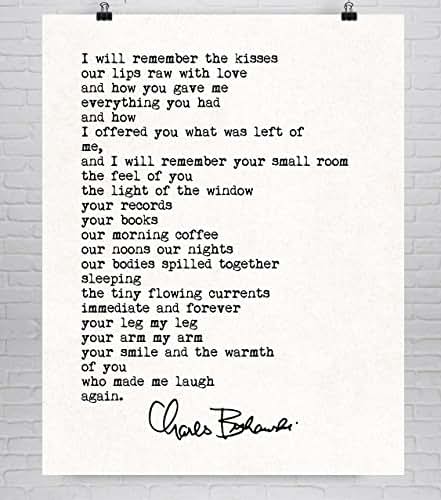 I will remember the kisses
our lips raw with love
and how you gave me
everything you had
and how
I offered you what was left of
me,
and I will remember your small room
the feel of you
the light of the window
your records
your books
our morning coffee
our noons our nights
our bodies spilled together
sleeping
the tiny flowing currents
immediate and forever
your leg my leg
your arm my arm
your smile and the warmth
of you
who made me laugh
again.
Charles Bukowski